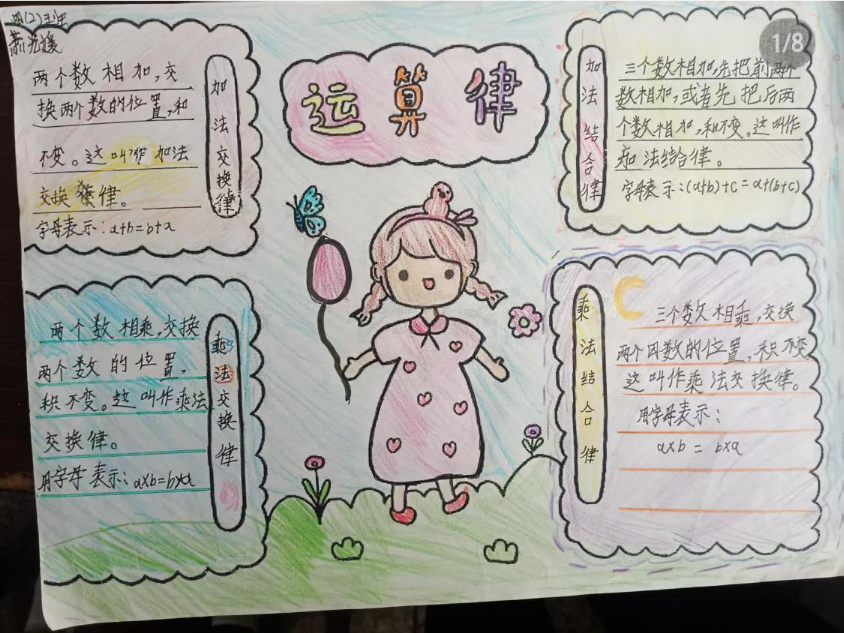 四(2)班
运算律
两个数相加,交
换两个数的位置,和
不变。这叫作加法
交换律。
字母表示:a+b=b+a
加法交换律
加法结合律
三个数相加,先把前两个
数相加,或者先把后两
个数相加,和不变。这叫作
加法结合律。
字母表示:(a+b)+c=a+(b+c)
1/8
两个数相乘,交换
两个数的位置,
积不变。这叫作乘法
交换律。
用字母表示:a×b=b×a
乘法交换律
乘法结合律
三个数相乘,交换
两个因数的位置,积不变
这叫作乘法交换律。
用字母表示:
a×b=b×a